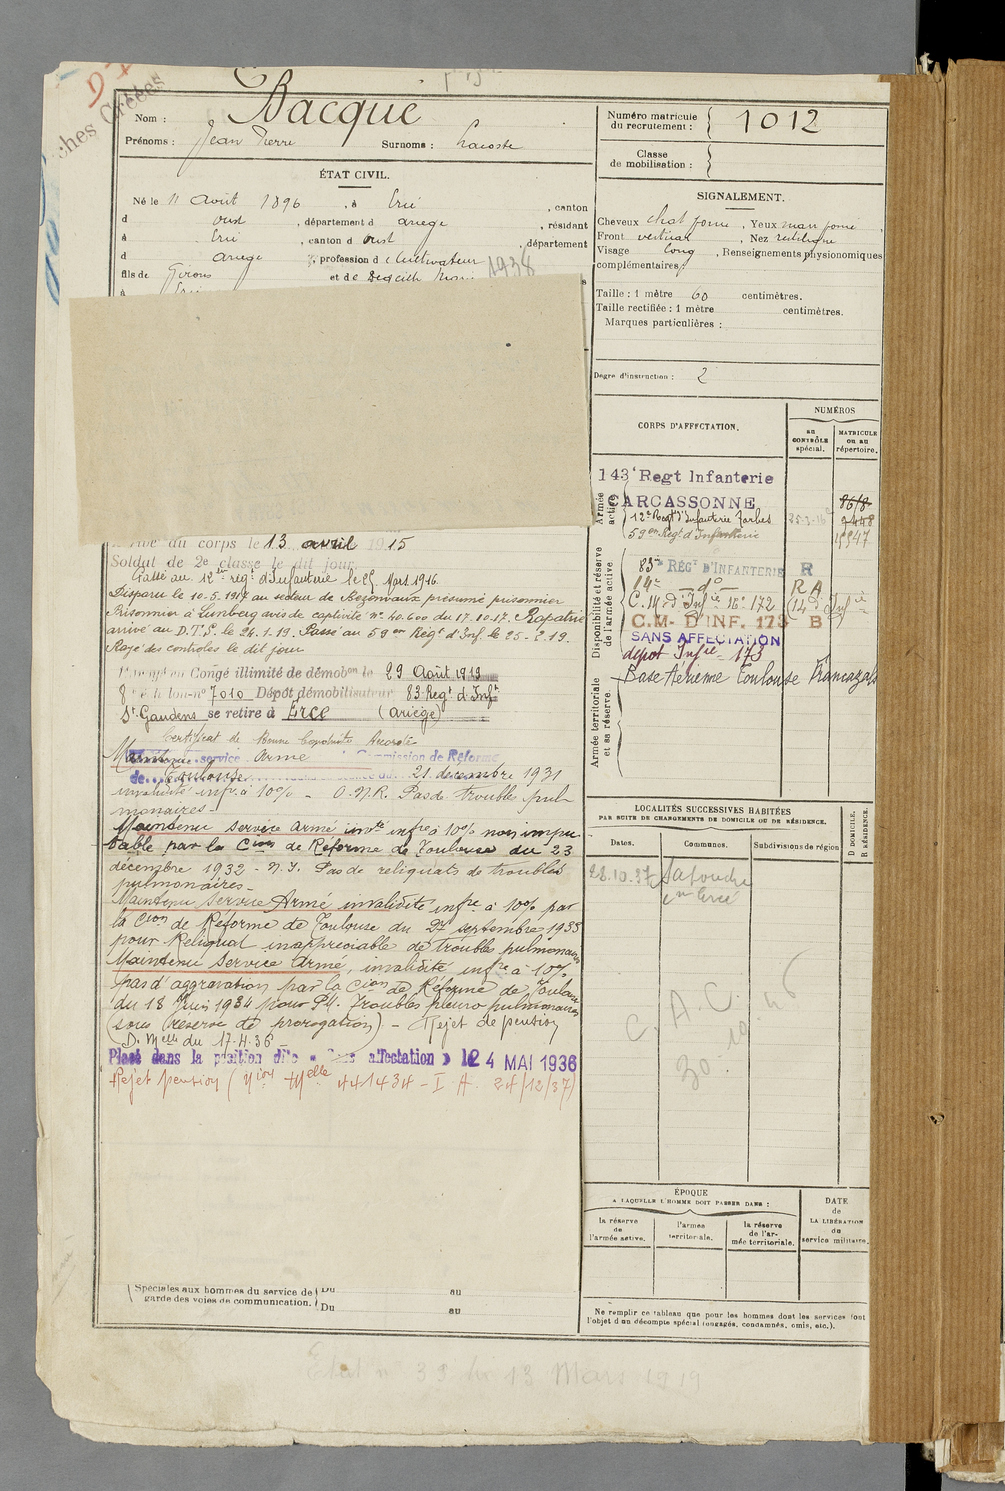 ches Créées
Nom : Bacque
Prénoms : Jean Pierre Surnoms : Lacoste
ÉTAT CIVIL.
Né le 11 Août 1896, à Ercé, canton
d oust, département d ariege, résidant
à Ercé, canton d oust, département
d ariege, profession d cultivateur
fils de et de
1938
arrivé au corps le 13 avril 1915
Soldat de 2e classe le dit jour
Passé au 12e régt d'Infanterie le 25 Mars 1916.
Disparu le 10-5-1917 au secteur de Bezonvaux présumé prisonnier
Prisonnier à Limberg avis de captivité no 40.600 du 17.10.17. Rapatrié
arrivé au D.T.S. le 26.1.19. Passé au 59em Régt d'Inf. le 25-2-19.
Rayé des contrôles le dit jour
Congé illimité de démobon le 29 Août 1919
8e éche lon-no 7010 Dépôt démobilisateur 83 Regt d'Infie
St Gaudens se retire à Ercé (Ariège)
Certificat de Bonne Conduite Accordé
Maintenu service armé Commission de Réforme
de Toulouse 21 décembre 1931
invalidité infre à 10% - O.N.R. Pas de troubles pul-
monaires -
Maintenu service armé invté infre à 10% non impu
table par la Cion de Réforme de Toulouse du 23
décembre 1932 - N.I. Pas de reliquats de troubles
pulmonaires -
Maintenu Service Armé invalidité infre à 10% par
la Cion de Réforme de Toulouse du 27 septembre 1933
pour Reliquat inappréciable de troubles pulmonaires
Maintenu Service Armé, invalidité infre à 10%
pas d'aggravation par la Cion de Réforme de Toulouse
du 18 Juin 1934 pour P.U. Troubles pleuro pulmonaires
(sous réserve de prorogation) - Rejet de pension
(D. Melle du 17.4.36 -
Placé dans la position dite « Sans affectation » le 4 MAI 1936
Rejet pension (Nion Melle 441434 - I.A. 24/12/37)
Spéciales aux hommes du service de Du au
garde des voies de communication. Du au
Numéro matricule
du recrutement : 1012
Classe
de mobilisation :
SIGNALEMENT.
Cheveux chat fonc, Yeux marr fonc,
Front vertical, Nez rectiligne
Visage long, Renseignements physionomiques
complémentaires :
Taille : 1 mètre 60 centimètres.
Taille rectifiée : 1 mètre centimètres.
Marques particulières :
Degré d'instruction : 2
CORPS D'AFFECTATION.
NUMÉROS
au
CONTRÔLE
spécial.
MATRICULE
ou au
répertoire.
Armée
active.
143e Regt Infanterie
CARCASSONNE 8618
12e Regt d'Infanterie Tarbes 25-3-16 9448
59em Régt d'Infanterie 15547
Disponibilité et réserve
de l'armée active.
83me RÉGt D'INFANTERIE R
14e - do - R A
C.M. d'Infie No 172 (14e d'Infie)
C.M- D'INF. 173 B
SANS AFFECTATION
depot Infie 173
Armée territoriale
et sa réserve.
Base Aérienne Toulouse Francazals
LOCALITÉS SUCCESSIVES HABITÉES
PAR SUITE DE CHANGEMENTS DE DOMICILE OU DE RÉSIDENCE.
D DOMICILE.
R RÉSIDENCE.
Dates. Communes. Subdivisions de région
22.10.37
en Ercé
C.A.C.
30 10 46
ÉPOQUE
A LAQUELLE L'HOMME DOIT PASSER DANS :
la réserve
de
l'armée active.
l'armée
territoriale.
la réserve
de l'ar-
mée territoriale.
DATE
de
LA LIBÉRATION
du
service militaire.
Ne remplir ce tableau que pour les hommes dont les services font
l'objet d'un décompte spécial (engagés, condamnés, omis, etc.).
Etat n 33 du 13 Mars 1919